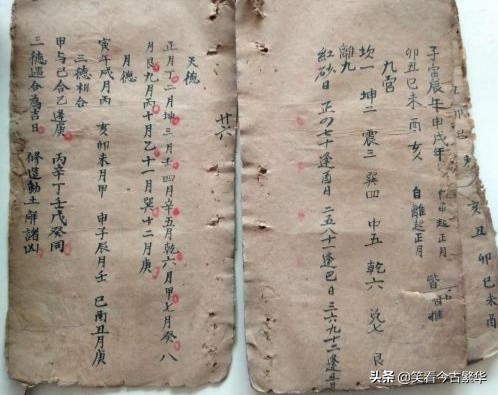 亥丑卯巳未酉
子寅辰午申戌年 起正月
卯丑巳未酉亥 自離起正月
九宮
坎一 坤二 震三 巽四 中五 乾六 兌七 艮
離九
紅砂日 正四七十逢酉日 二五八十一逢巳日 三六九十二逢丑日
廿六
天德
正月丁二月坤三月壬四月辛五月乾六月甲七月癸八
月艮九月丙十月乙十一月巽十二月庚
月德
寅午戌月丙 亥卯未月甲 申子辰月壬 巳酉丑月庚
三德相合
甲与己合乙逢庚 丙辛丁壬戊癸同
二德遇合為吉日 修造動土解諸凶
头条 @笑看今古繁华